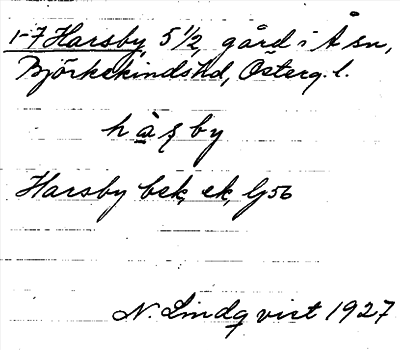 1-7 Harsby, 5 1/2 gård i Å sn,
Björkekinds hd, Österg. l.
hàʂby
Harsby bek, ek, G56
N. Lindqvist 1927